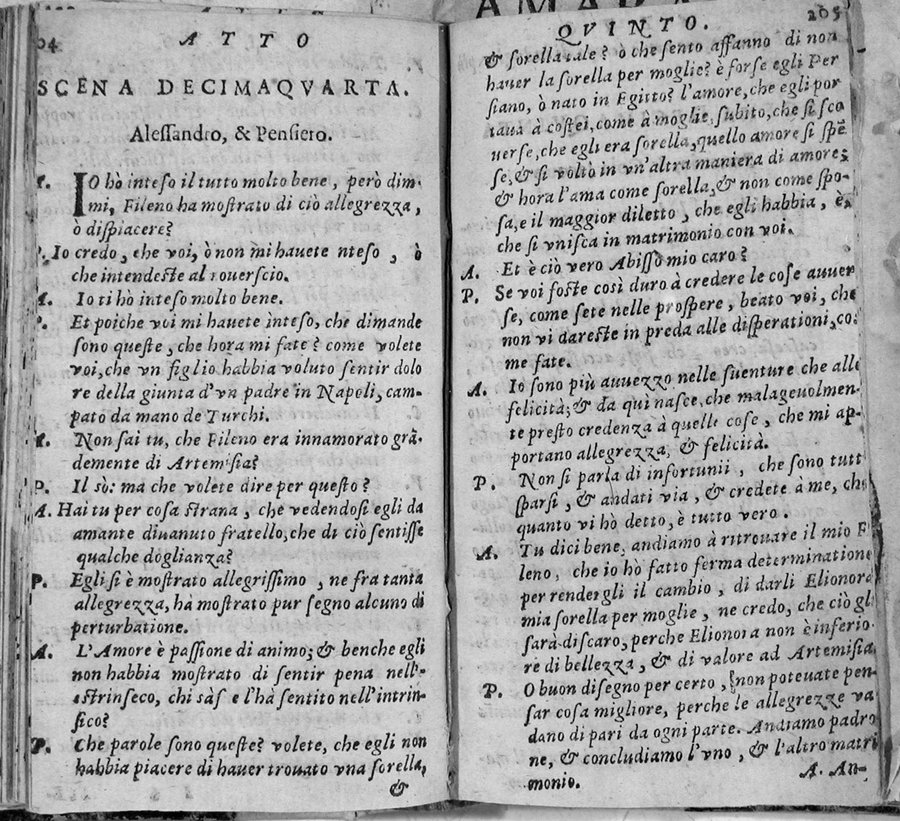 04 ATTO
SCENA DECIMAQVARTA.
Alessandro, & Pensiero.
A. IO hò inteso il tutto molto bene, però dim-
mi, Fileno ha mostrato di ciò allegrezza,
ò dispiacere?
P. Io credo, che voi, ò non mi hauete nteso, ò
che intendeste al rouerscio.
A. Io ti hò inteso molto bene.
P. Et poiche voi mi hauete inteso, che dimande
sono queste, che hora mi fate? come volete
voi, che vn figlio habbia voluto sentir dolo
re della giunta d'vn padre in Napoli, cam-
pato da mano de Turchi.
A. Non sai tu, che Fileno era innamorato grã-
demente di Artemisia?
P. Il sò: ma che volete dire per questo?
A. Hai tu per cosa strana, che vedendosi egli da
amante diuanuto fratello, che di ciò sentisse
qualche doglianza?
P. Egli si è mostrato allegrissimo, ne fra tanta
allegrezza, hà mostrato pur segno alcuno di
perturbatione.
A. L'Amore è passione di animo; & benche egli
non habbia mostrato di sentir pena nell'-
estrinseco, chi sà s'e l'hà sentito nell'intrin-
sico?
P. Che parole sono queste? volete, che egli non
habbia piacere di hauer trouato vna sorella,
&
QVINTO. 205
& sorella tale? ò che sento affanno di non
hauer la sorella per moglie? è forse egli Per
siano, ò nato in Egitto? l'amore, che egli por
taua à costei, come à moglie, subito, che si sco
uerse, che egli era sorella, quello amore si spẽ
se, & si voltò in vn'altra maniera di amore;
& hora l'ama come sorella, & non come spo-
sa, e il maggior diletto, che egli habbia, è,
che si vnisca in matrimonio con voi.
A. Et è ciò vero Abisso mio caro?
P. Se voi foste così duro à credere le cose auuer
se, come sete nelle prospere, beato voi, che
non vi dareste in preda alle disperationi, co-
me fate.
A. Io sono più auuezzo nelle suenture che alle
felicità; & da qui nasce, che malageuolmen-
te presto credenza à quelle cose, che mi ap-
portano allegrezza, & felicità.
P. Non si parla di infortunii, che sono tutt
sparsi, & andati via, & credete à me, che
quanto vi hò detto, è tutto vero.
A. Tu dici bene, andiamo à ritrouare il mio F
leno, che io hò fatto ferma determinatione
per rendergli il cambio, di darli Elionora
mia sorella per moglie, ne credo, che ciò gl
sarà discaro, perche Elionora non è inferio-
re di bellezza, & di valore ad Artemisia
P. O buon disegno per certo, non poteuate pen-
sar cosa migliore, perche le allegrezze va
dano di pari da ogni parte. Andiamo padro
ne, & concludiamo l'vno, & l'altro matri
monio.
A. An-